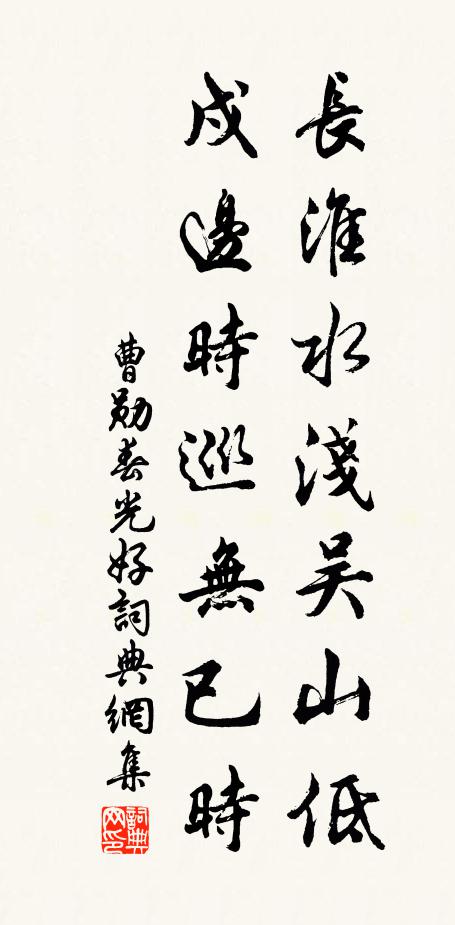 長淮水淺吴山低
戍邊時巡無已時
曹勛春光好詞典網集
詞典網印